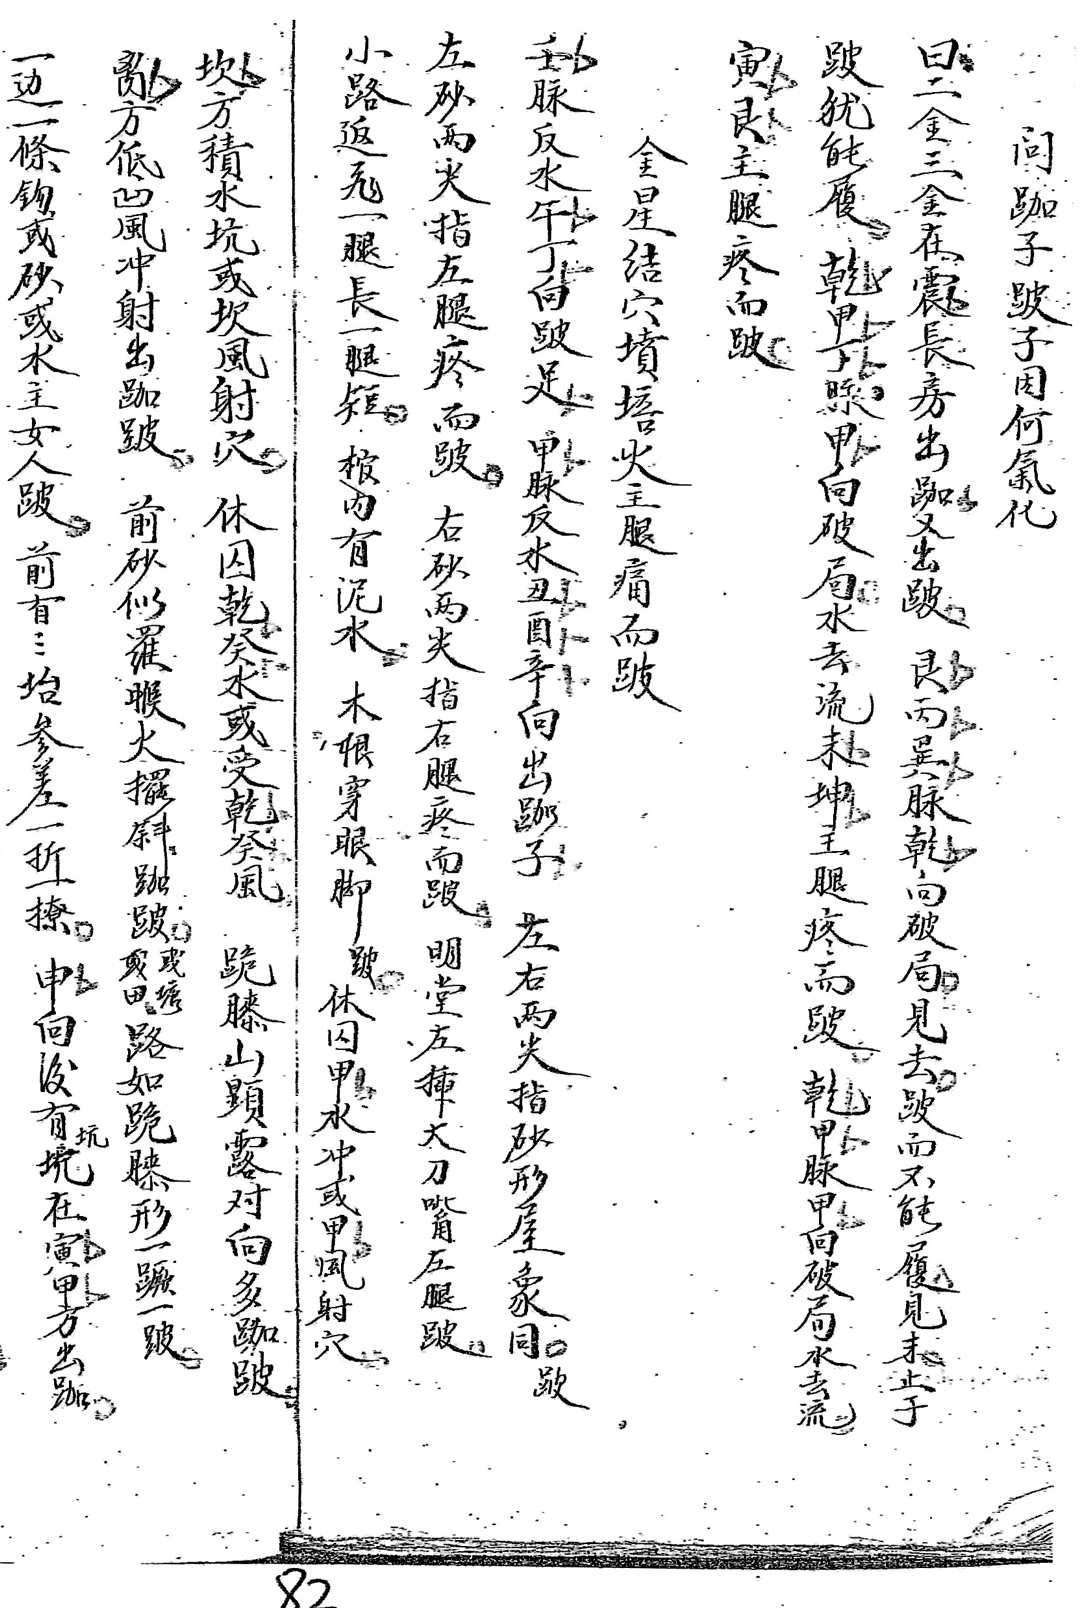 問跏子跛子因何氣化
曰二金三金在震長房出跏又出跛 艮丙巽脉乾向破局見去跛而不能履見未止于
跛犹能履 乾甲丁脉甲向破局水去流未坤主腿疼而跛 乾甲脉甲向破局水去流
寅艮主腿疼而跛
金星结穴墳培火主腿痛而跛
壬脉反水午丁向跛足 甲脉反水丑酉辛向出跏子 左右两尖指砂形屋象同跛
左砂两尖指左腿疼而跛 右砂两尖指右腿疼而跛 明堂左揷大刀嘴左腿跛
小路返飛一腿長一腿短 棺内有泥水 木根穿眼脚跛 休囚甲水冲或甲風射穴
坎方積水坑或坎風射穴 休囚乾癸水或受乾癸風 跪膝山顕露对向多跏跛
离方低凹風冲射出跏跛 前砂似羅睺火擺斜跏跛或塘或田路如跪膝形一蹶一跛
一边一條鈎或砂或水主女人跛 前有三坮参差一折一撩 申向後有坑在寅甲方出跏
82